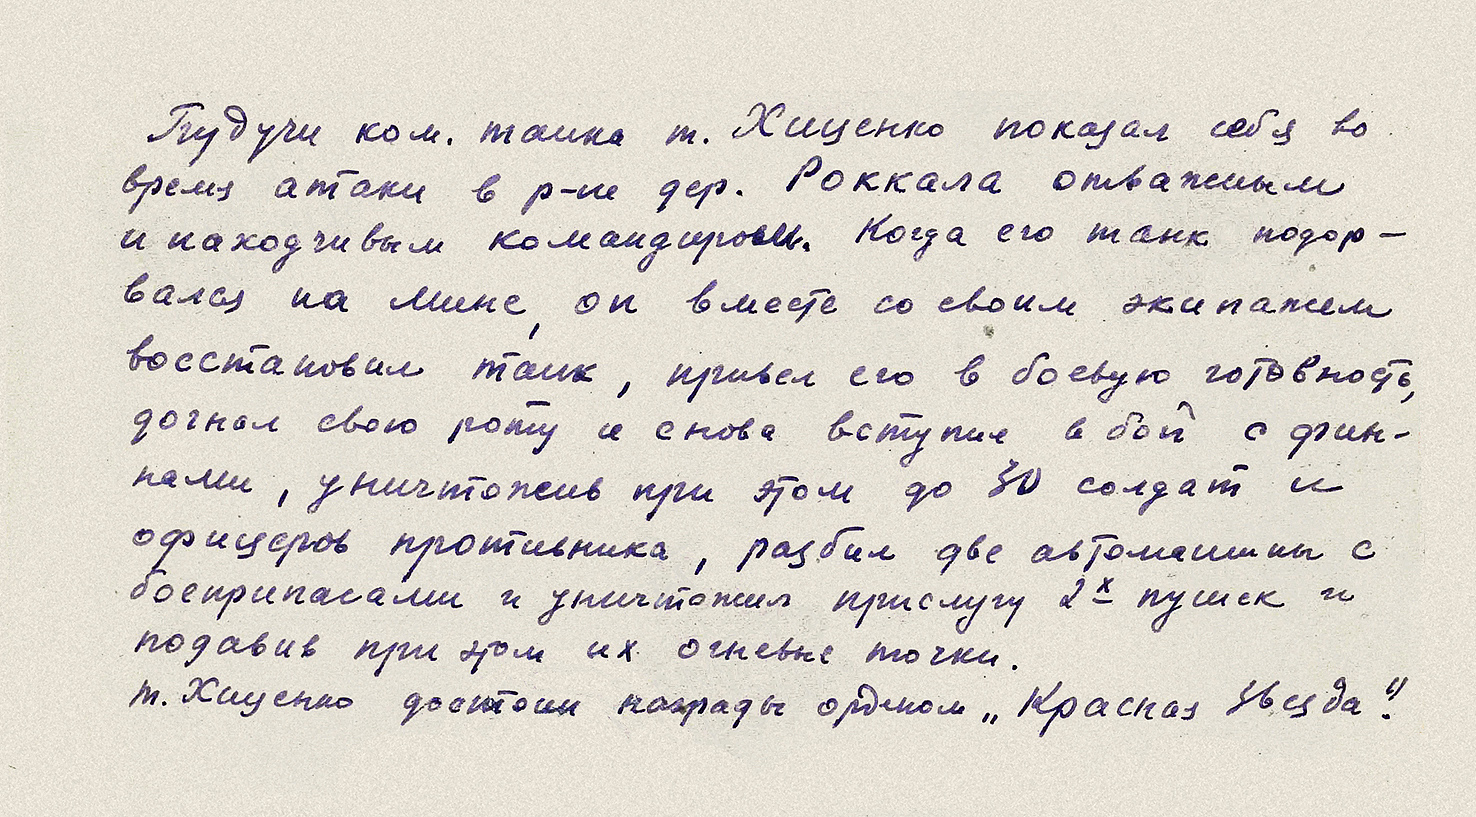 Будучи ком. танка т. Хищенко показал себя во
время атаки в р-не дер. Роккала отважным
и находчивым командиром. Когда его танк подор-
вался на мине, он вместе со своим экипажем
восстановил танк, привел его в боевую готовность,
догнал свою роту и снова вступил в бой с фин-
нами, уничтожив при этом до 30 солдат и
офицеров противника, разбил две автомашины с
боеприпасами и уничтожил прислугу 2х пушек и
подавив при этом их огневые точки.
т. Хищенко достоин награды орденом „Красная Звезда".